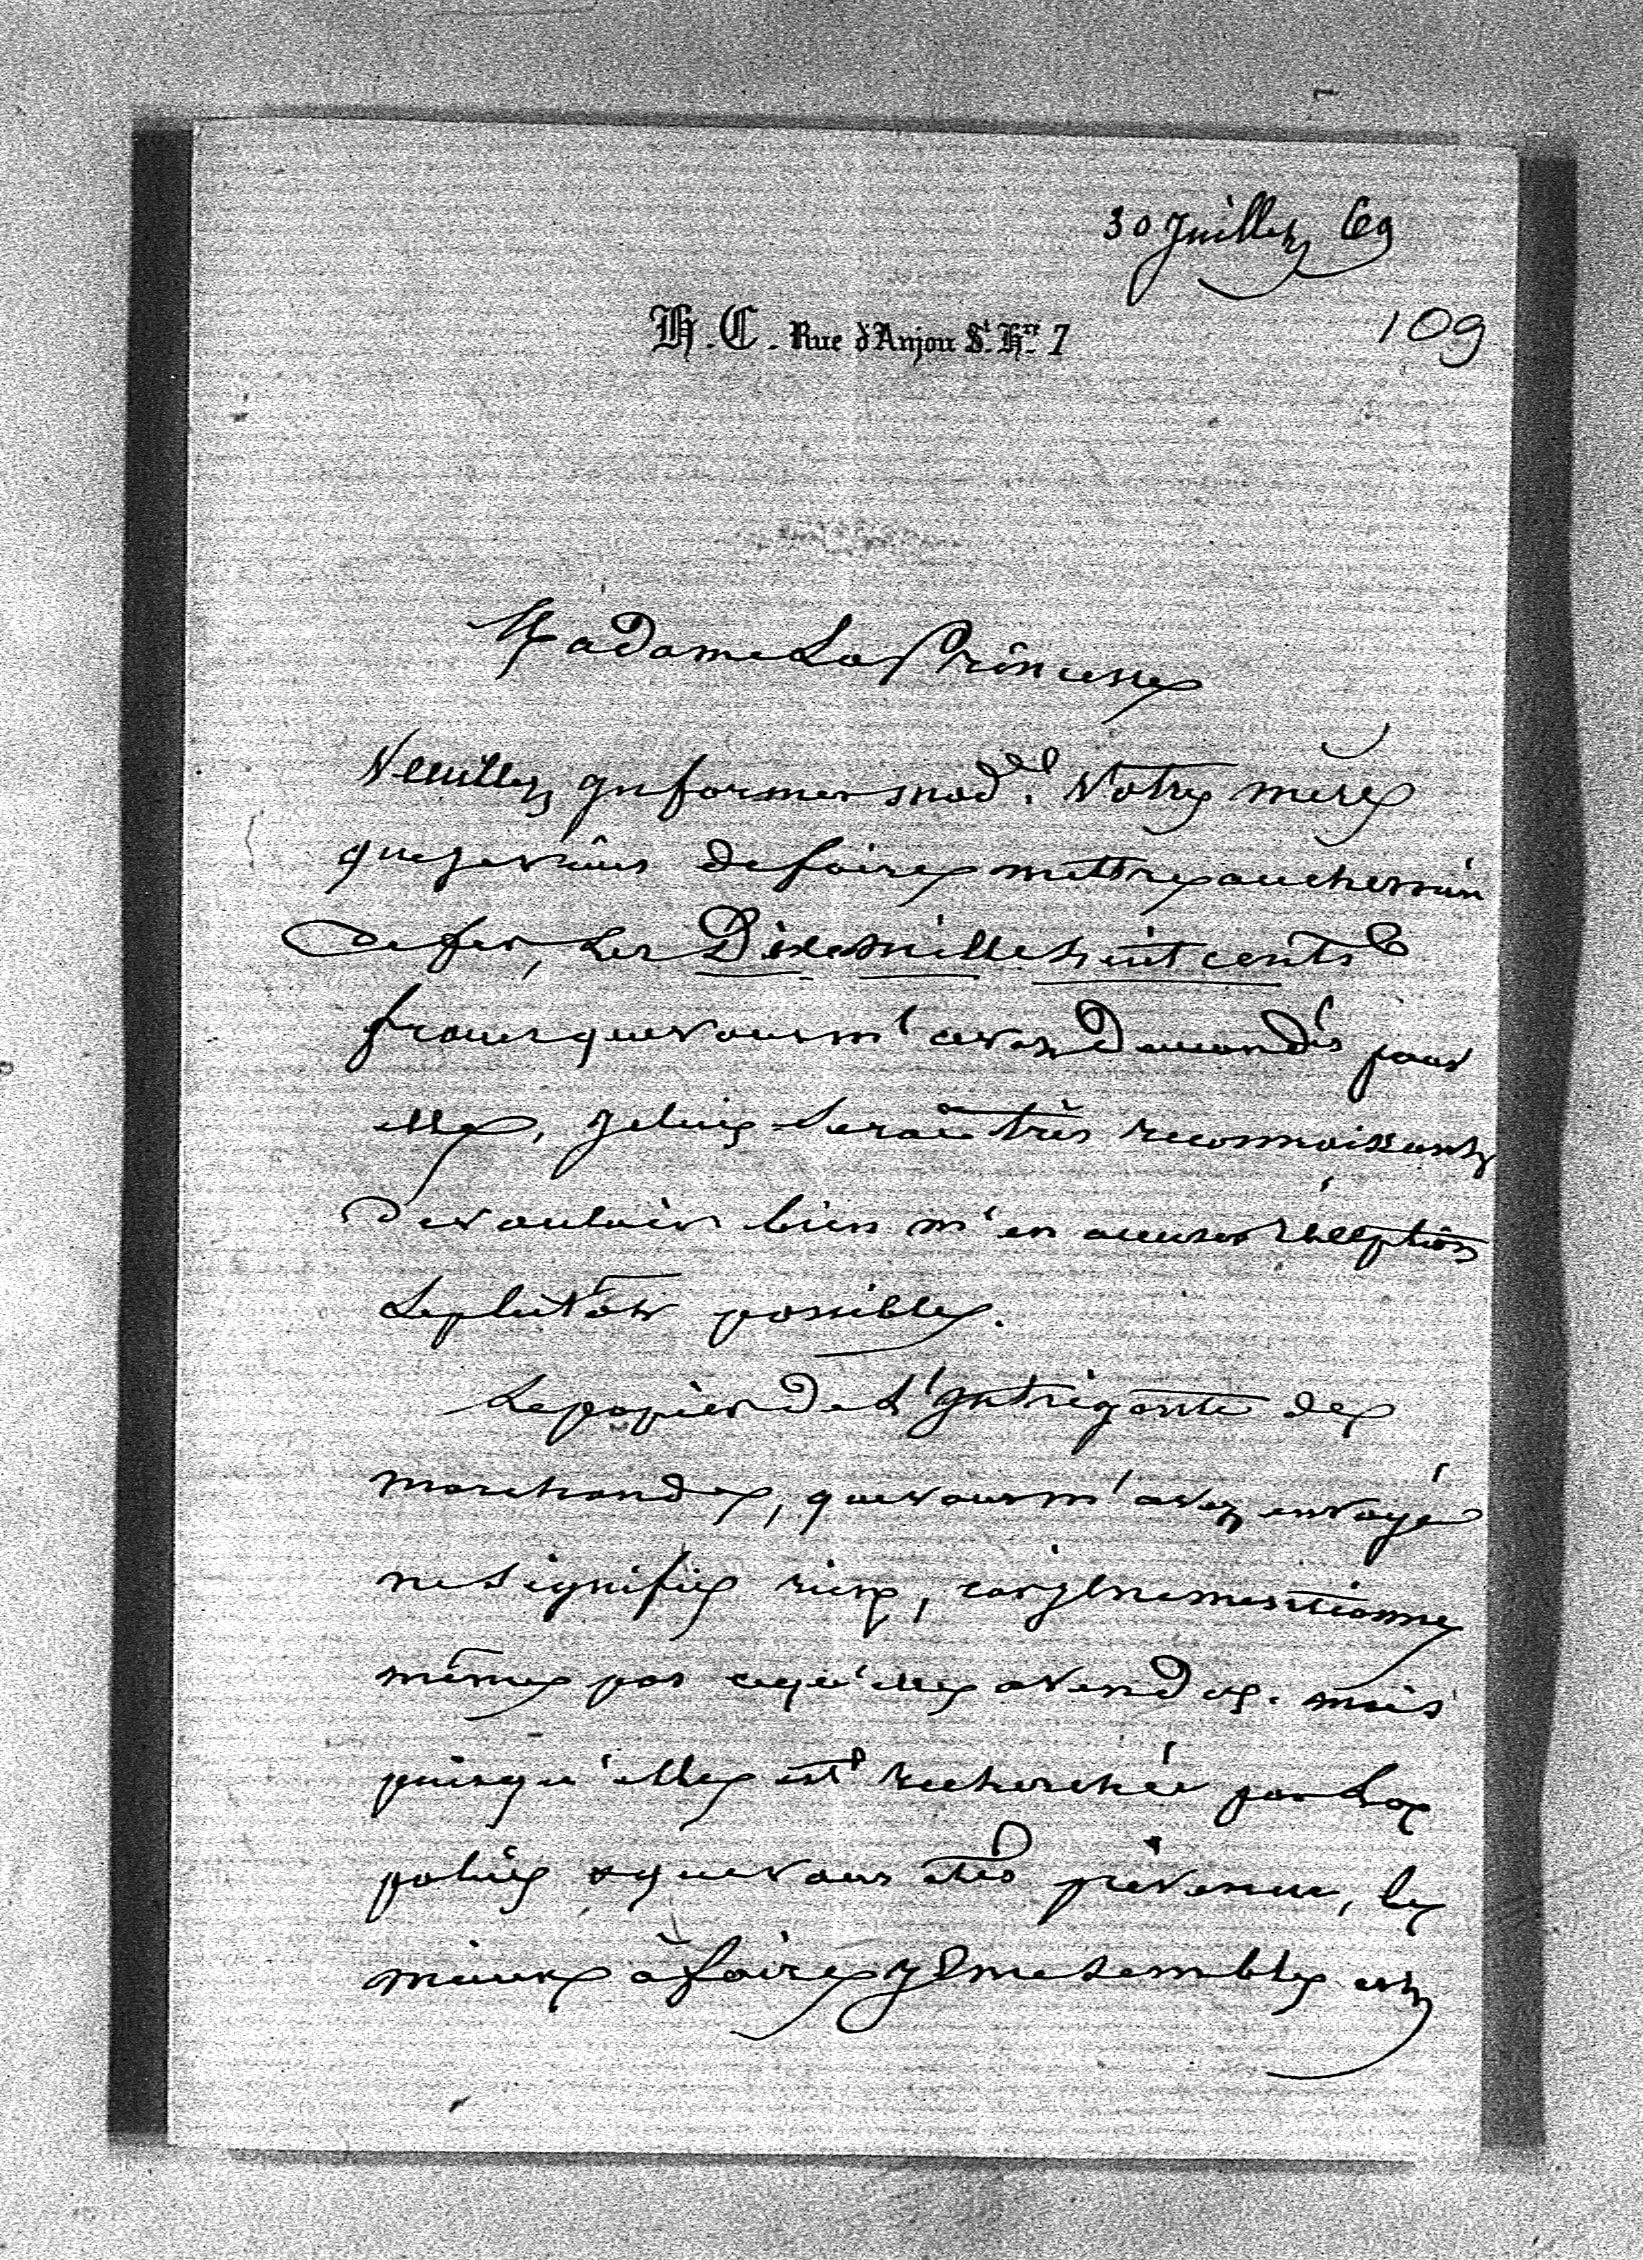 30 Juillet 69
109
H. C. Rue d'Anjou St. Hré. 7
Madame La Princesse
Veuillez Informer mad.e Votre mère
que je viens de faire mettre au chemin
de fer, les Dix mille huit cents
francs que vous m'avez demandés pour
elle, Je lui serai très reconnaissant
de vouloir bien m'en accuser réception
le plutôt possible.
Le papier de L'Intrigante de
marchande, que vous m'avez envoyé
ne signifie rien, car Il ne mentionne
même pas ce qu'elle a vendu. mais
puisqu'elle est recherchée par La
police & que vous êtes prévenue, le
mieux à faire Il me semble est